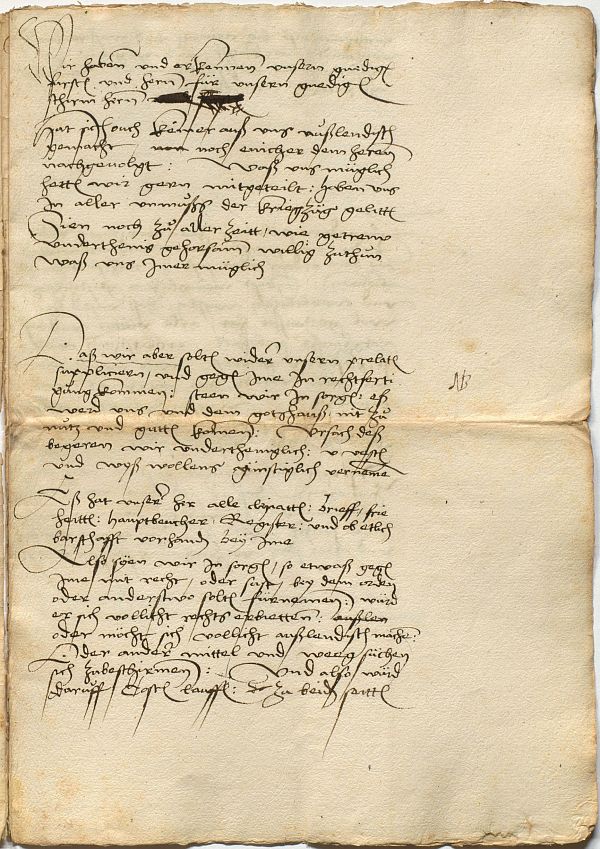 Wir haben und erkennen unsern gnedig
fürsten und hern für unsern gnedig
schirm hern
Hat sich ouch keiner auß uns ußlendisch
gemacht noch enicher dem herenn
nachgevolgt : Waß uns müglich
hett wir gern mitgeteilt : haben uns
In aller unmuß der kriegzüg gelitt
Sien noch zů aller zeitt / wie getrew
underthenig gehorsam willig zuthun
waß uns Imer müglich
Daß wir aber solt wider unsern prelat
supplicirn / und geg Ime In rechtfert
gung kommen : steen wir In sorg : eß
werd uns und dem gotshauß nit zů
nutz und gutt komen : Ursach deß
begeren wir underthenigklich : u vest
und wyß wollens günstiglich verneme
NB
Eß hat unser her alle clynatt brieff / frie
heitt : hauptbeucher / Register : und ob etlich
barschafft vorhand bey ime
Also söen wir In sorg / so etwaß geg
Ime mit recht / oder sust / bey dem orden
oder anderstwo solt fürnemen : würd
er sich vollicht rechts erbietten :
oder möcht sich vollicht außlendisch mache :
Oder ander mittel und weeg süchen
sich zubeschirmen : Und also würd
daruff Cost lauff : zu beid seitt